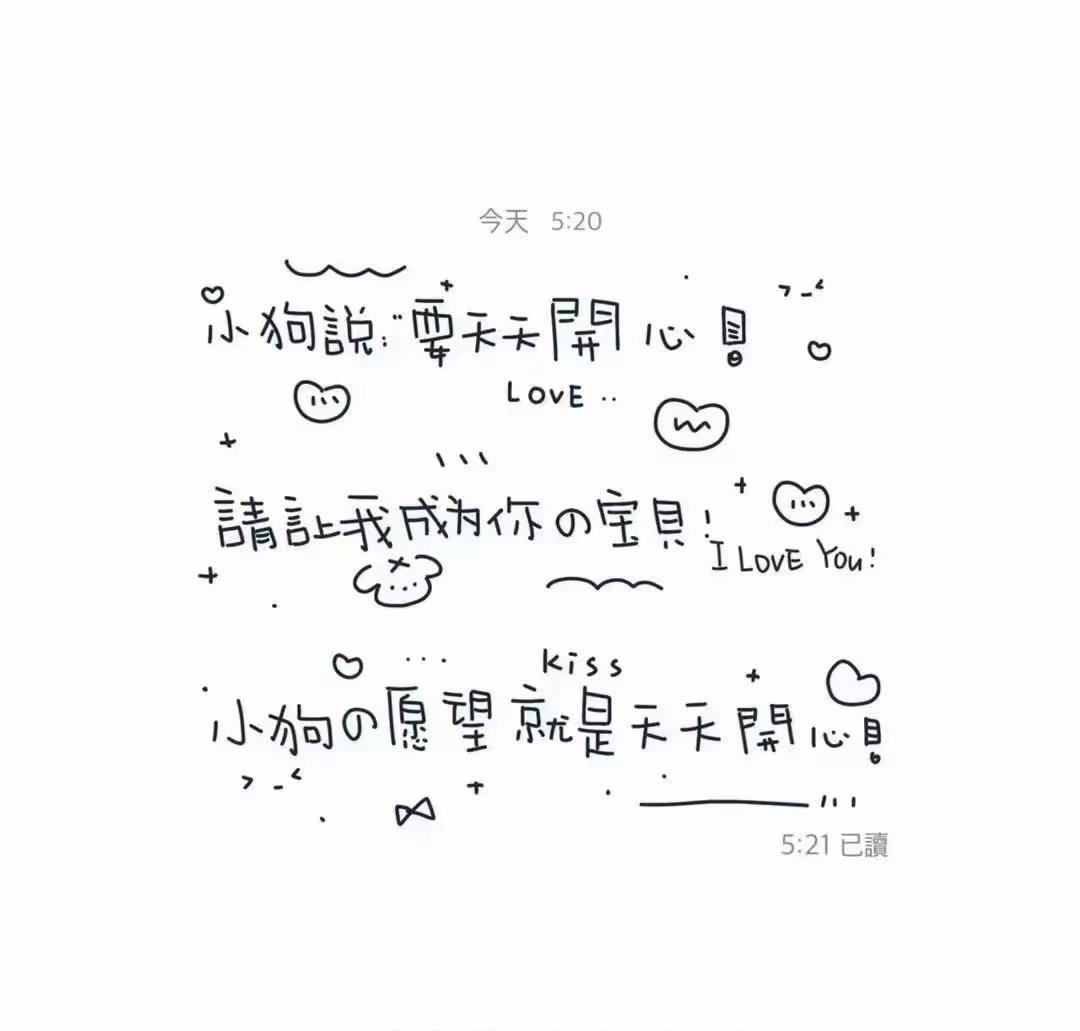 今天 5:20
小狗說:“要天天開心!
LOVE ..
請让我成为你の宝貝!
I LOVE You!
kiss
小狗の愿望就是天天開心!
5:21 已讀